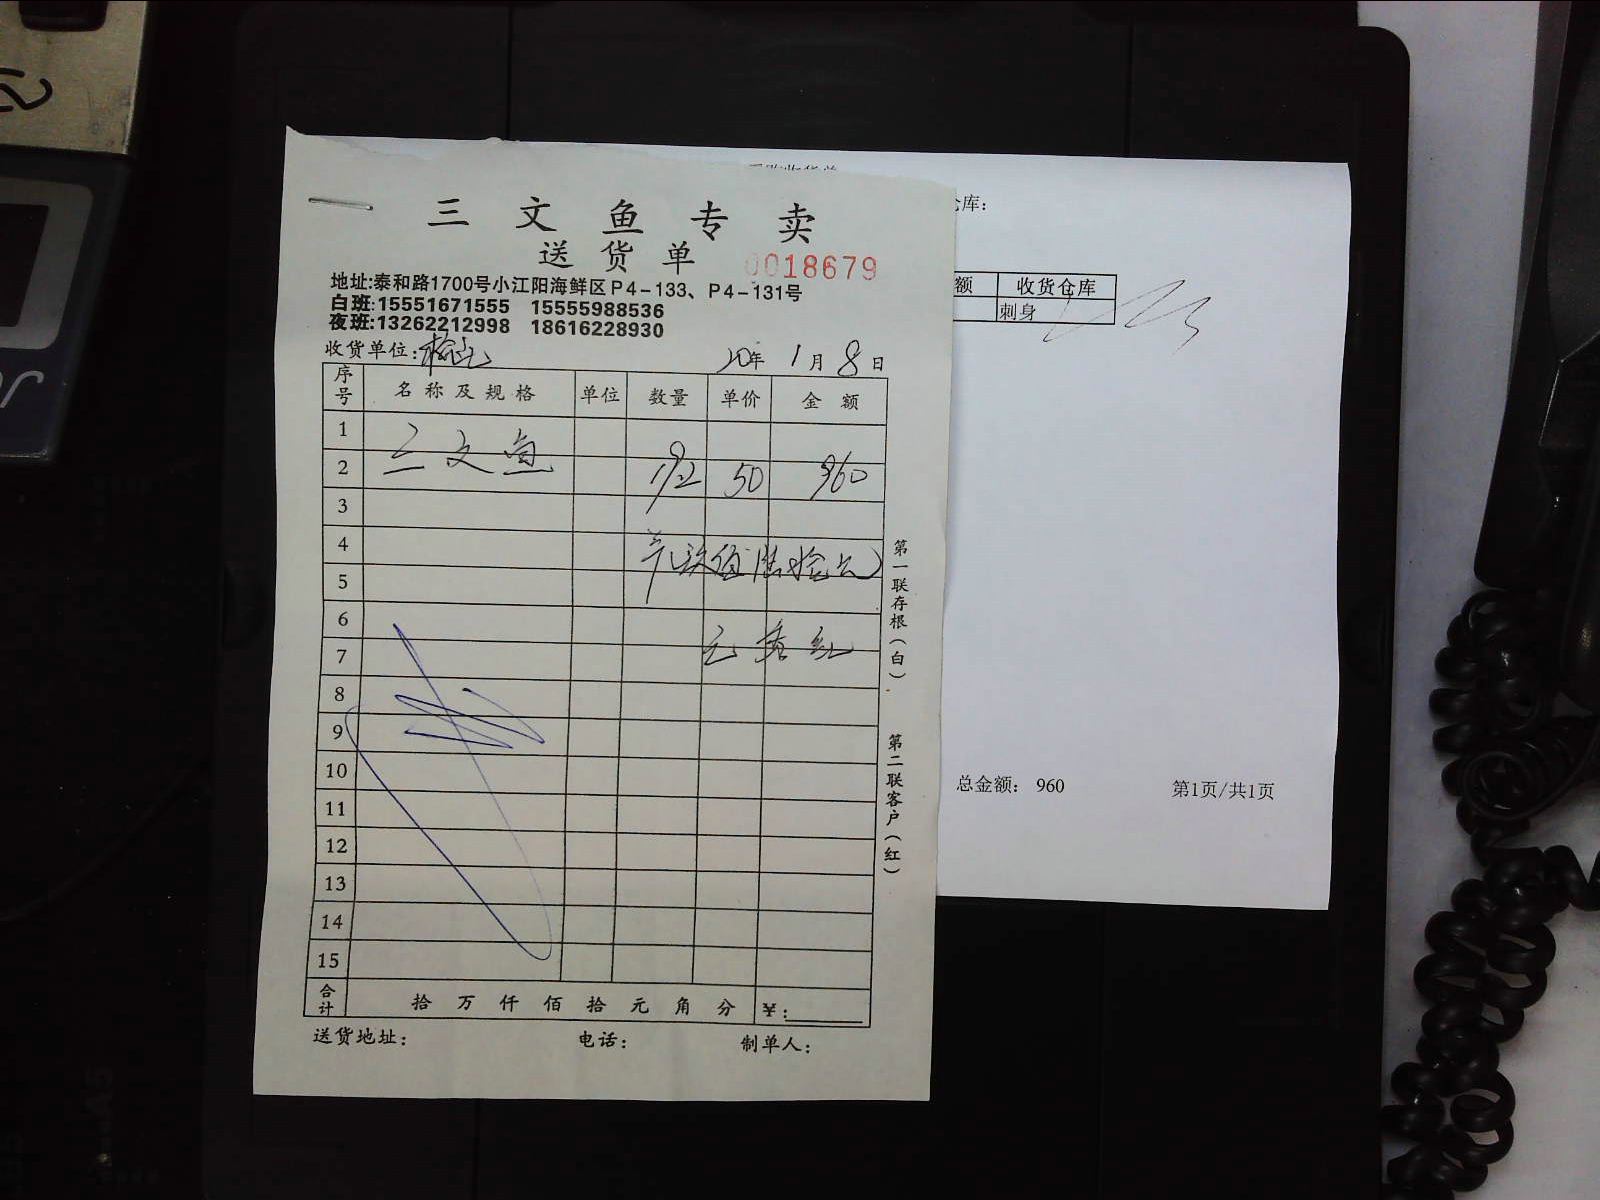 三文鱼专卖
送货单 0018679
地址:泰和路1700号小江阳海鲜区P4-133、P4-131号
白班:15551671555 15555988536
夜班:13262212998 18616228930
收货单位: 20年 1月 8日
序号 名称及规格 单位 数量 单价 金额
1
2 三文鱼 192 50 960
3
4
5 玖佰陆拾元
6
7
8
9
10
11
12
13
14
15
合计 拾 万 仟 佰 拾 元 角 分 ¥:
送货地址: 电话: 制单人:
第一联存根(白)
第二联客户(红)
仓库:
额 收货仓库
刺身
总金额: 960 第1页/共1页